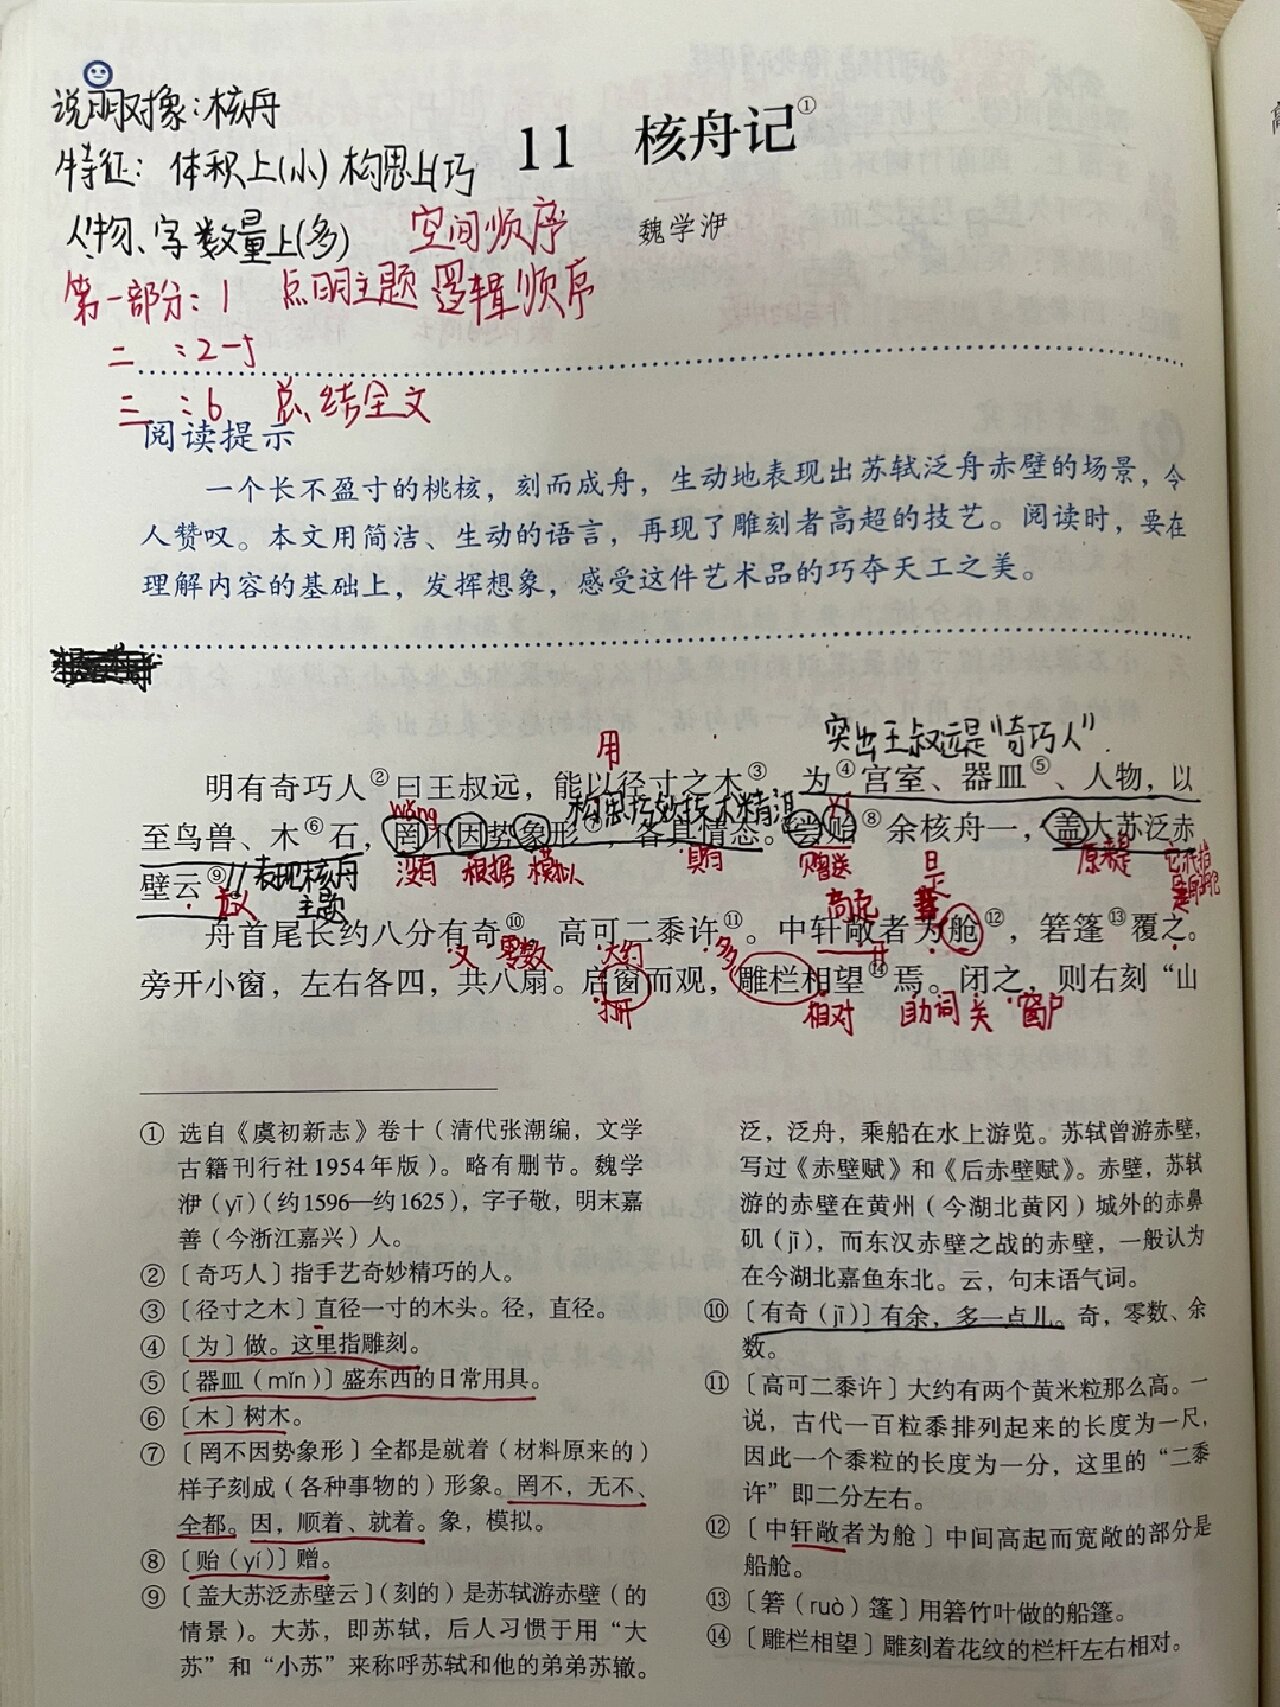 说明对象：核舟
特征：体积上(小)构思上巧
人物、字数量上(多) 空间顺序
第一部分：1 点明主题 逻辑顺序
二：2-5
三：6 总结全文
11 核舟记①
魏学洢
阅读提示
一个长不盈寸的桃核，刻而成舟，生动地表现出苏轼泛舟赤壁的场景，令
人赞叹。本文用简洁、生动的语言，再现了雕刻者高超的技艺。阅读时，要在
理解内容的基础上，发挥想象，感受这件艺术品的巧夺天工之美。
突出王叔远是“奇巧人”
用
明有奇巧人②曰王叔远，能以径寸之木③，为④宫室、器皿⑤、人物，以
wǎng 构思巧妙技术精湛 yí
至鸟兽、木⑥石，罔不因势象形⑦，各具情态。尝贻⑧余核舟一，盖大苏泛赤
没有 根据 模拟 具有 赠送 原来是
壁云⑨。//表现核舟
主题
高起
舟首尾长约八分有奇⑩，高可二黍许⑪。中轩敞者为舱⑫，箬篷⑬覆之。
又 零数 大约 多 开
旁开小窗，左右各四，共八扇。启窗而观，雕栏相望⑭焉。闭之，则右刻“山
打开 相对 助词 关 窗户
① 选自《虞初新志》卷十（清代张潮编，文学
古籍刊行社1954年版）。略有删节。魏学
洢（yī）（约1596—约1625），字子敬，明末嘉
善（今浙江嘉兴）人。
② 〔奇巧人〕指手艺奇妙精巧的人。
③ 〔径寸之木〕直径一寸的木头。径，直径。
④ 〔为〕做。这里指雕刻。
⑤ 〔器皿（mǐn）〕盛东西的日常用具。
⑥ 〔木〕树木。
⑦ 〔罔不因势象形〕全都是就着（材料原来的）
样子刻成（各种事物的）形象。罔不，无不、
全都。因，顺着、就着。象，模拟。
⑧ 〔贻（yí）〕赠。
⑨ 〔盖大苏泛赤壁云〕（刻的）是苏轼游赤壁（的
情景）。大苏，即苏轼，后人习惯于用“大
苏”和“小苏”来称呼苏轼和他的弟弟苏辙。
泛，泛舟，乘船在水上游览。苏轼曾游赤壁，
写过《赤壁赋》和《后赤壁赋》。赤壁，苏轼
游的赤壁在黄州（今湖北黄冈）城外的赤鼻
矶（jī），而东汉赤壁之战的赤壁，一般认为
在今湖北嘉鱼东北。云，句末语气词。
⑩ 〔有奇（jī）〕有余，多一点儿。奇，零数、余
数。
⑪ 〔高可二黍许〕大约有两个黄米粒那么高。一
说，古代一百粒黍排列起来的长度为一尺，
因此一个黍粒的长度为一分，这里的“二黍
许”即二分左右。
⑫ 〔中轩敞者为舱〕中间高起而宽敞的部分是
船舱。
⑬ 〔箬（ruò）篷〕用箬竹叶做的船篷。
⑭ 〔雕栏相望〕雕刻着花纹的栏杆左右相对。